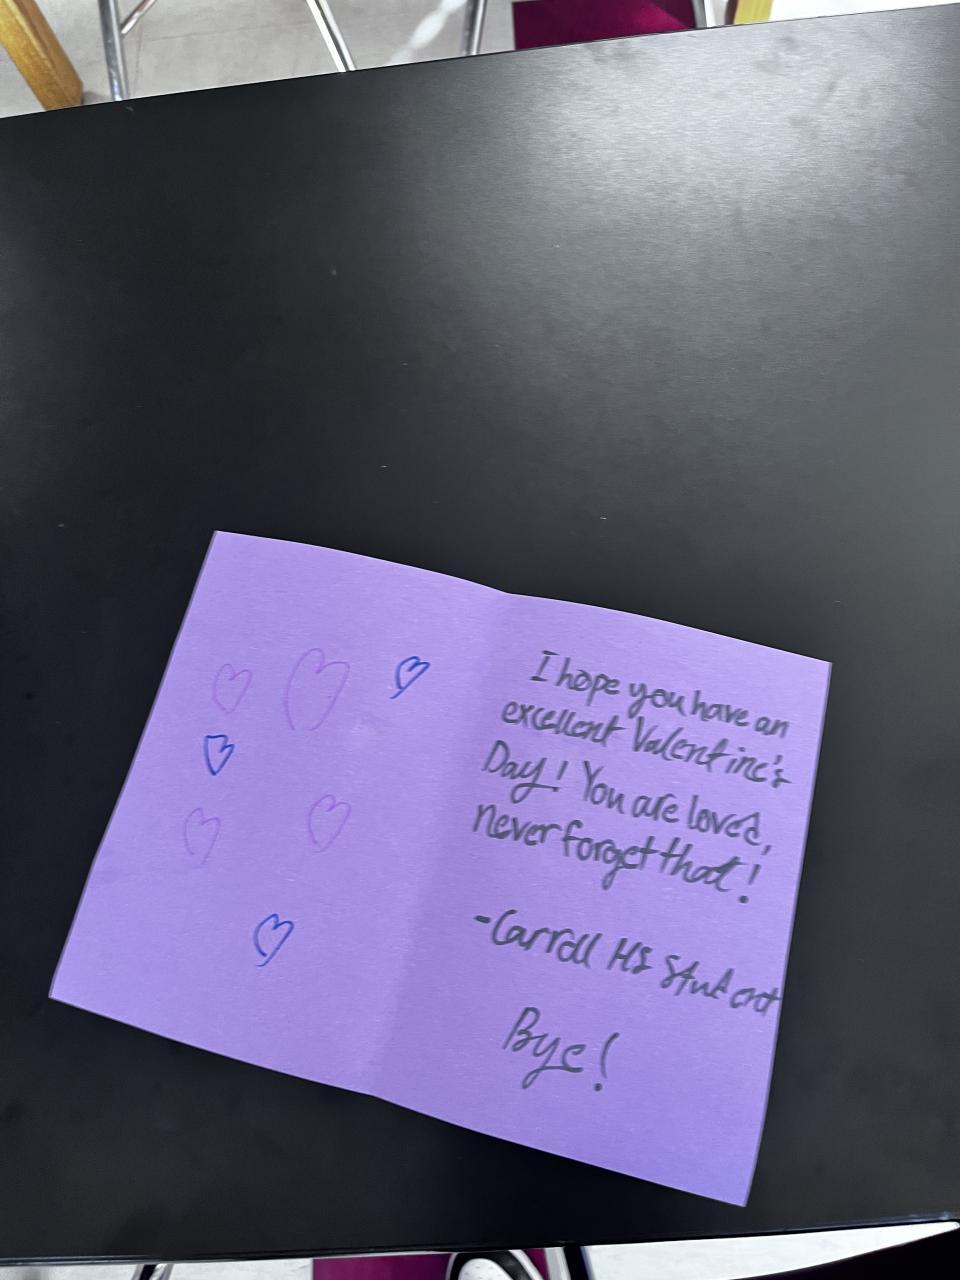 I hope you have an
excellent Valentine's
Day! You are loved,
never forget that!
-Carroll HS Student
Bye!